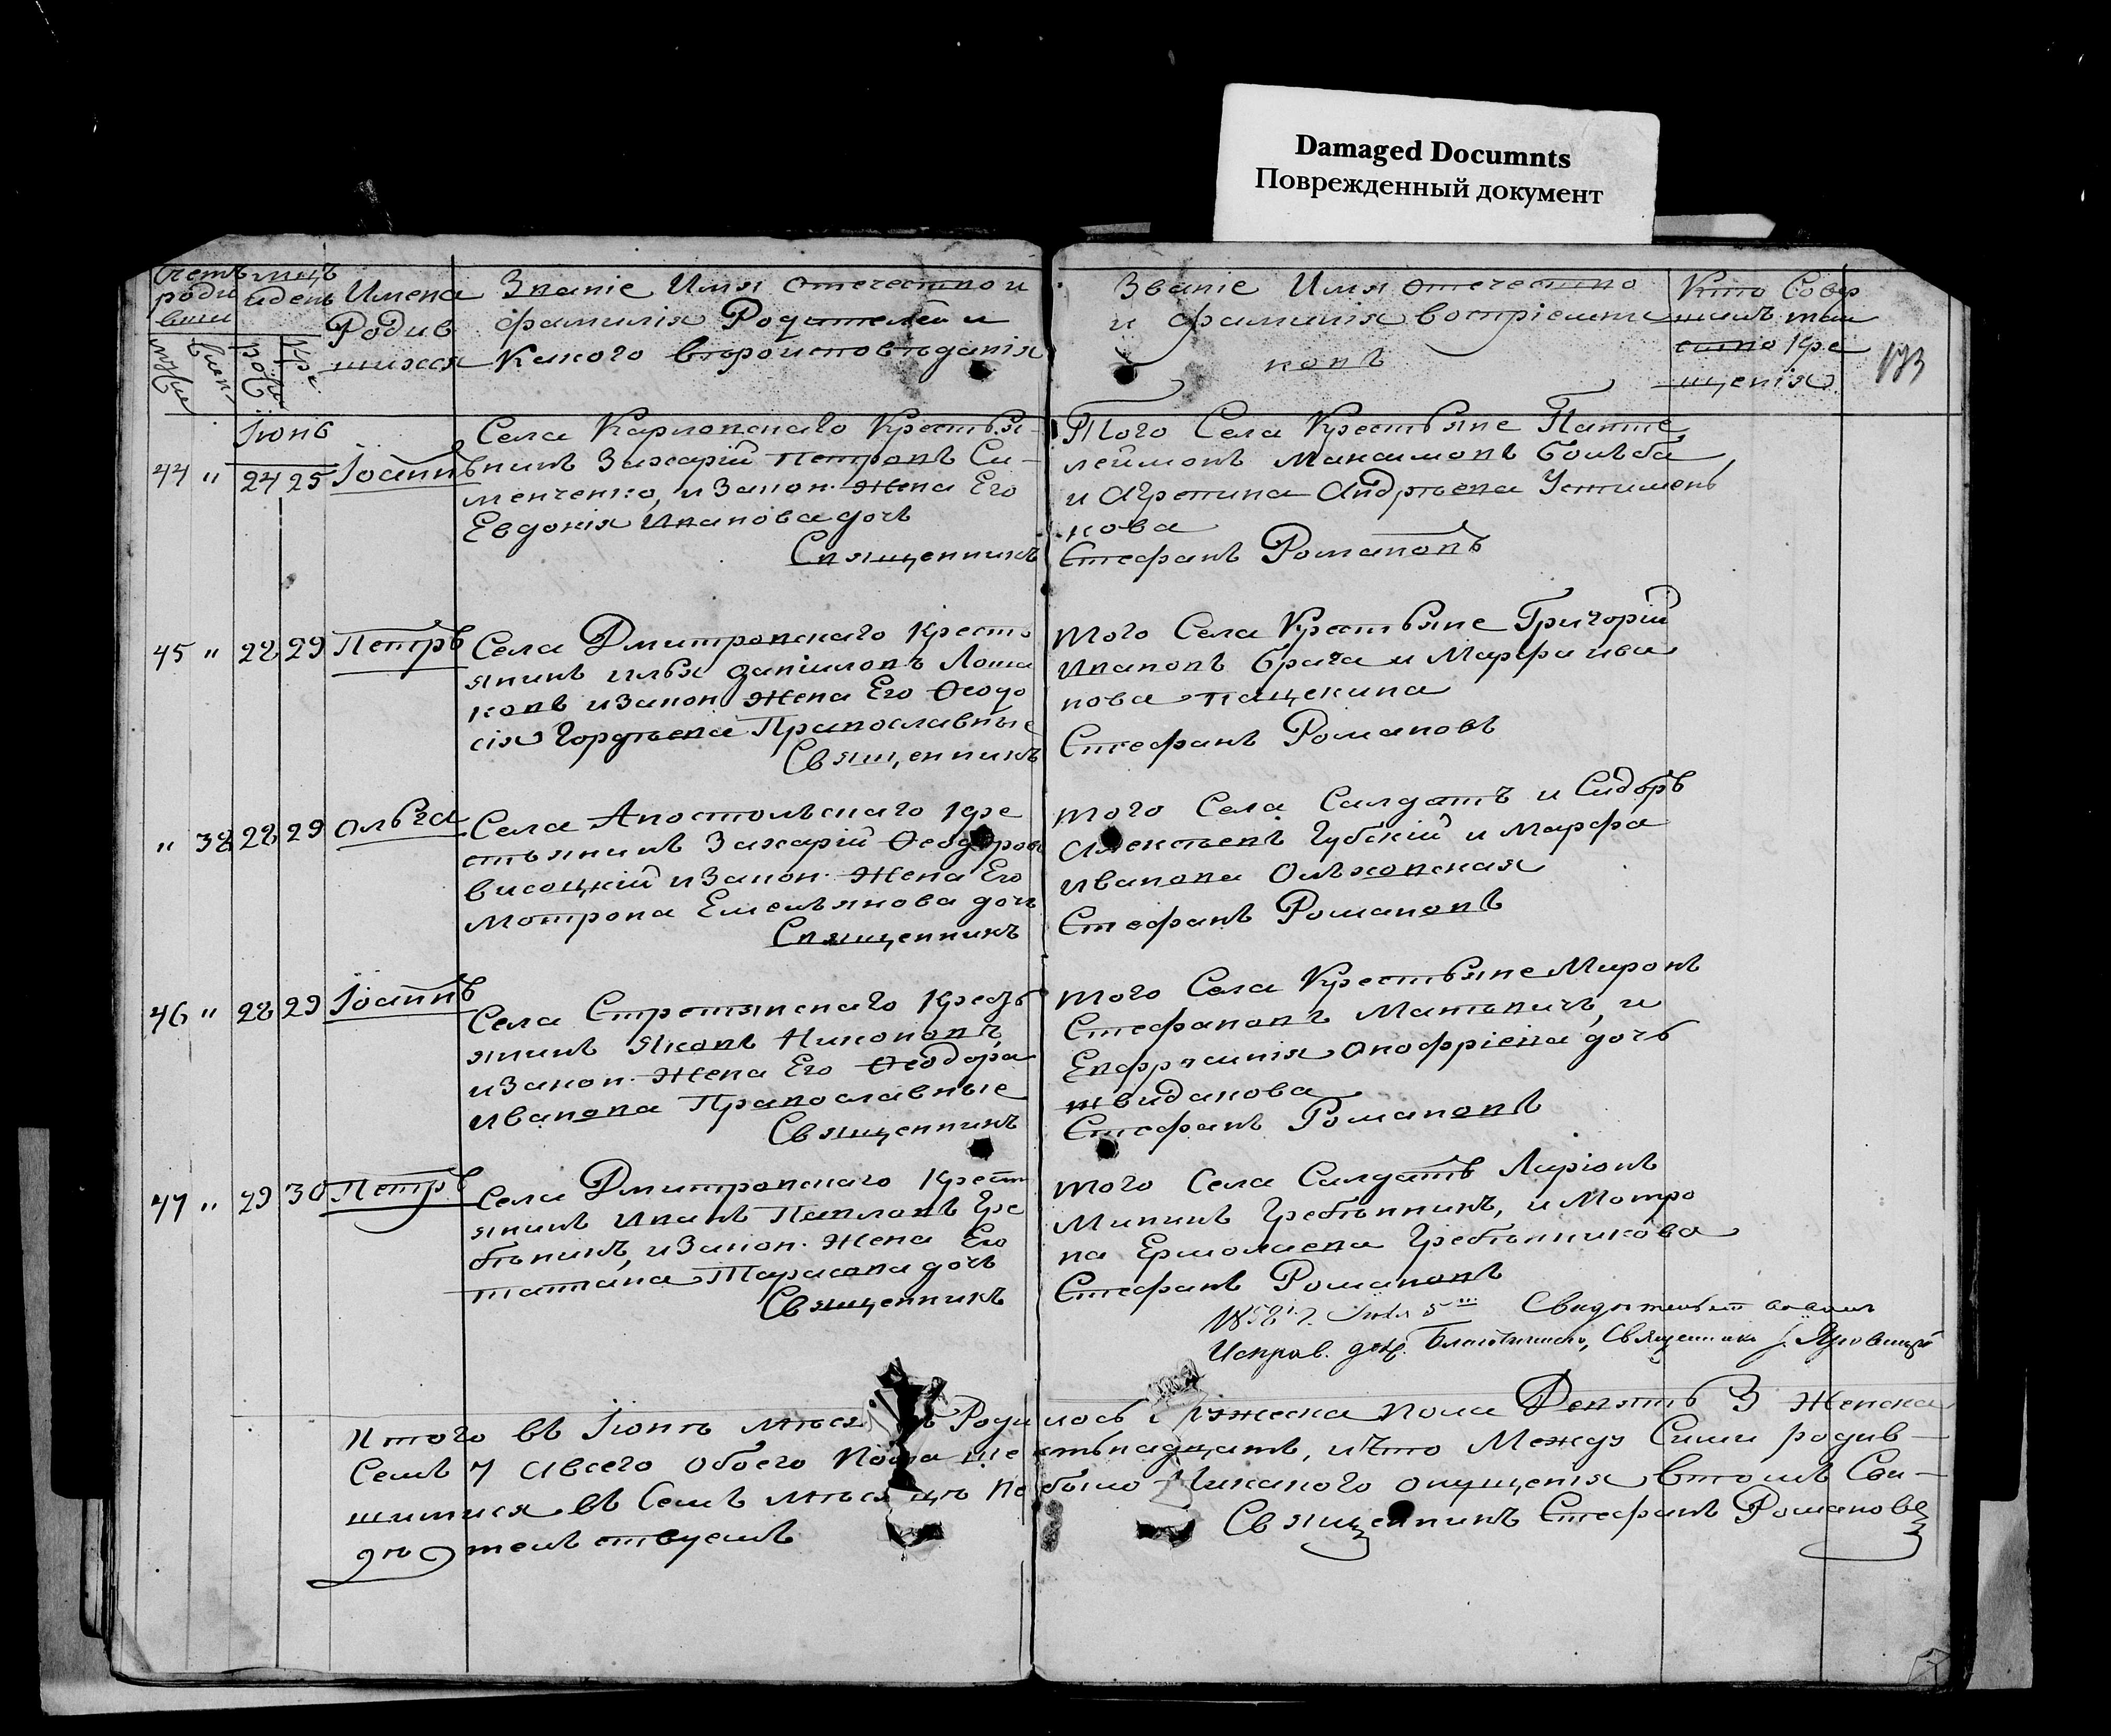 Damaged Documnts
Поврежденный документ
Счетъ
роди
вши
мцъ
и день
Имена
Родив
шихся
Званіе Имя отечество и
фамилія Родителей и
какого вѣроисповѣданія
Званіе Имя отечество
и фамилія воспріемни
ковъ
Кто Совер
шилъ таи
ство Кре
щенія
173
Іюнь
44 " 24 25 Іоаннъ
Села Карловскаго Крестья-
нинъ Захарій Петровъ Си-
менченко, и Закон. Жена Его
Евдокія Иванова дочь
Священникъ
Того Села Крестьяне Панте
леймонъ Максимовъ Болѣба,
и Агрепина Андрѣева Устимен
кова
Стефанъ Романовъ
45 " 28 29 Петръ
Села Дмитровскаго Кресть
янинъ Илья Даніиловъ Лоша
ковъ и Закон. Жена Его Ѳеодо
сія Гордѣева Православные
Священникъ
того Села Крестьяне Григорій
Ивановъ Брага и Марфа Ива
нова Пащекина
Стефанъ Романовъ
" 38 28 29 Ольга
Села Апостольскаго Кре
стьянинъ Захарій Ѳеодоровъ
Висоцкій и Закон. Жена Его
Мотрона Емельянова дочь
Священникъ
того Села Салдатъ и Сидоръ
Алексѣевъ Губскій и Марфа
Иванова Ольховская
Стефанъ Романовъ
46 " 28 29 Іоаннъ
Села Стретянскаго Кресть
янинъ Яковъ Никоновъ,
и Закон. Жена Его Ѳеодора
Иванова Православные
Священникъ
того Села Крестьяне Миронъ
Стефановъ Матвичъ, и
Евфросинія Онофріева дочь
швидакова
Стефанъ Романовъ
47 " 29 30 Петръ
Села Дмитровскаго Крест
янинъ Иванъ Павловъ Гре
бѣникъ, и Закон. Жена Его
татіана Тарасова дочь
Священникъ
того Села Салдатъ Ларіонъ
Мининъ Гребѣнникъ, и Мотро
на Ермолаева Гребѣнникова
Стефанъ Романовъ
Іюля 5
Исправ. долж. Благочиннаго, Священникъ
Итого въ Іюнѣ мѣсяцѣ Родилось мужеска пола Девять 9 Женска
Семъ 7 Авсего Обоего Пола шестьнадцать, и что Между Сими родив-
шимися въ Семъ мѣсяцѣ Не было Никакого опущенія втомъ Сви-
дѣтельствуемъ
Священникъ Стефанъ Романовъ